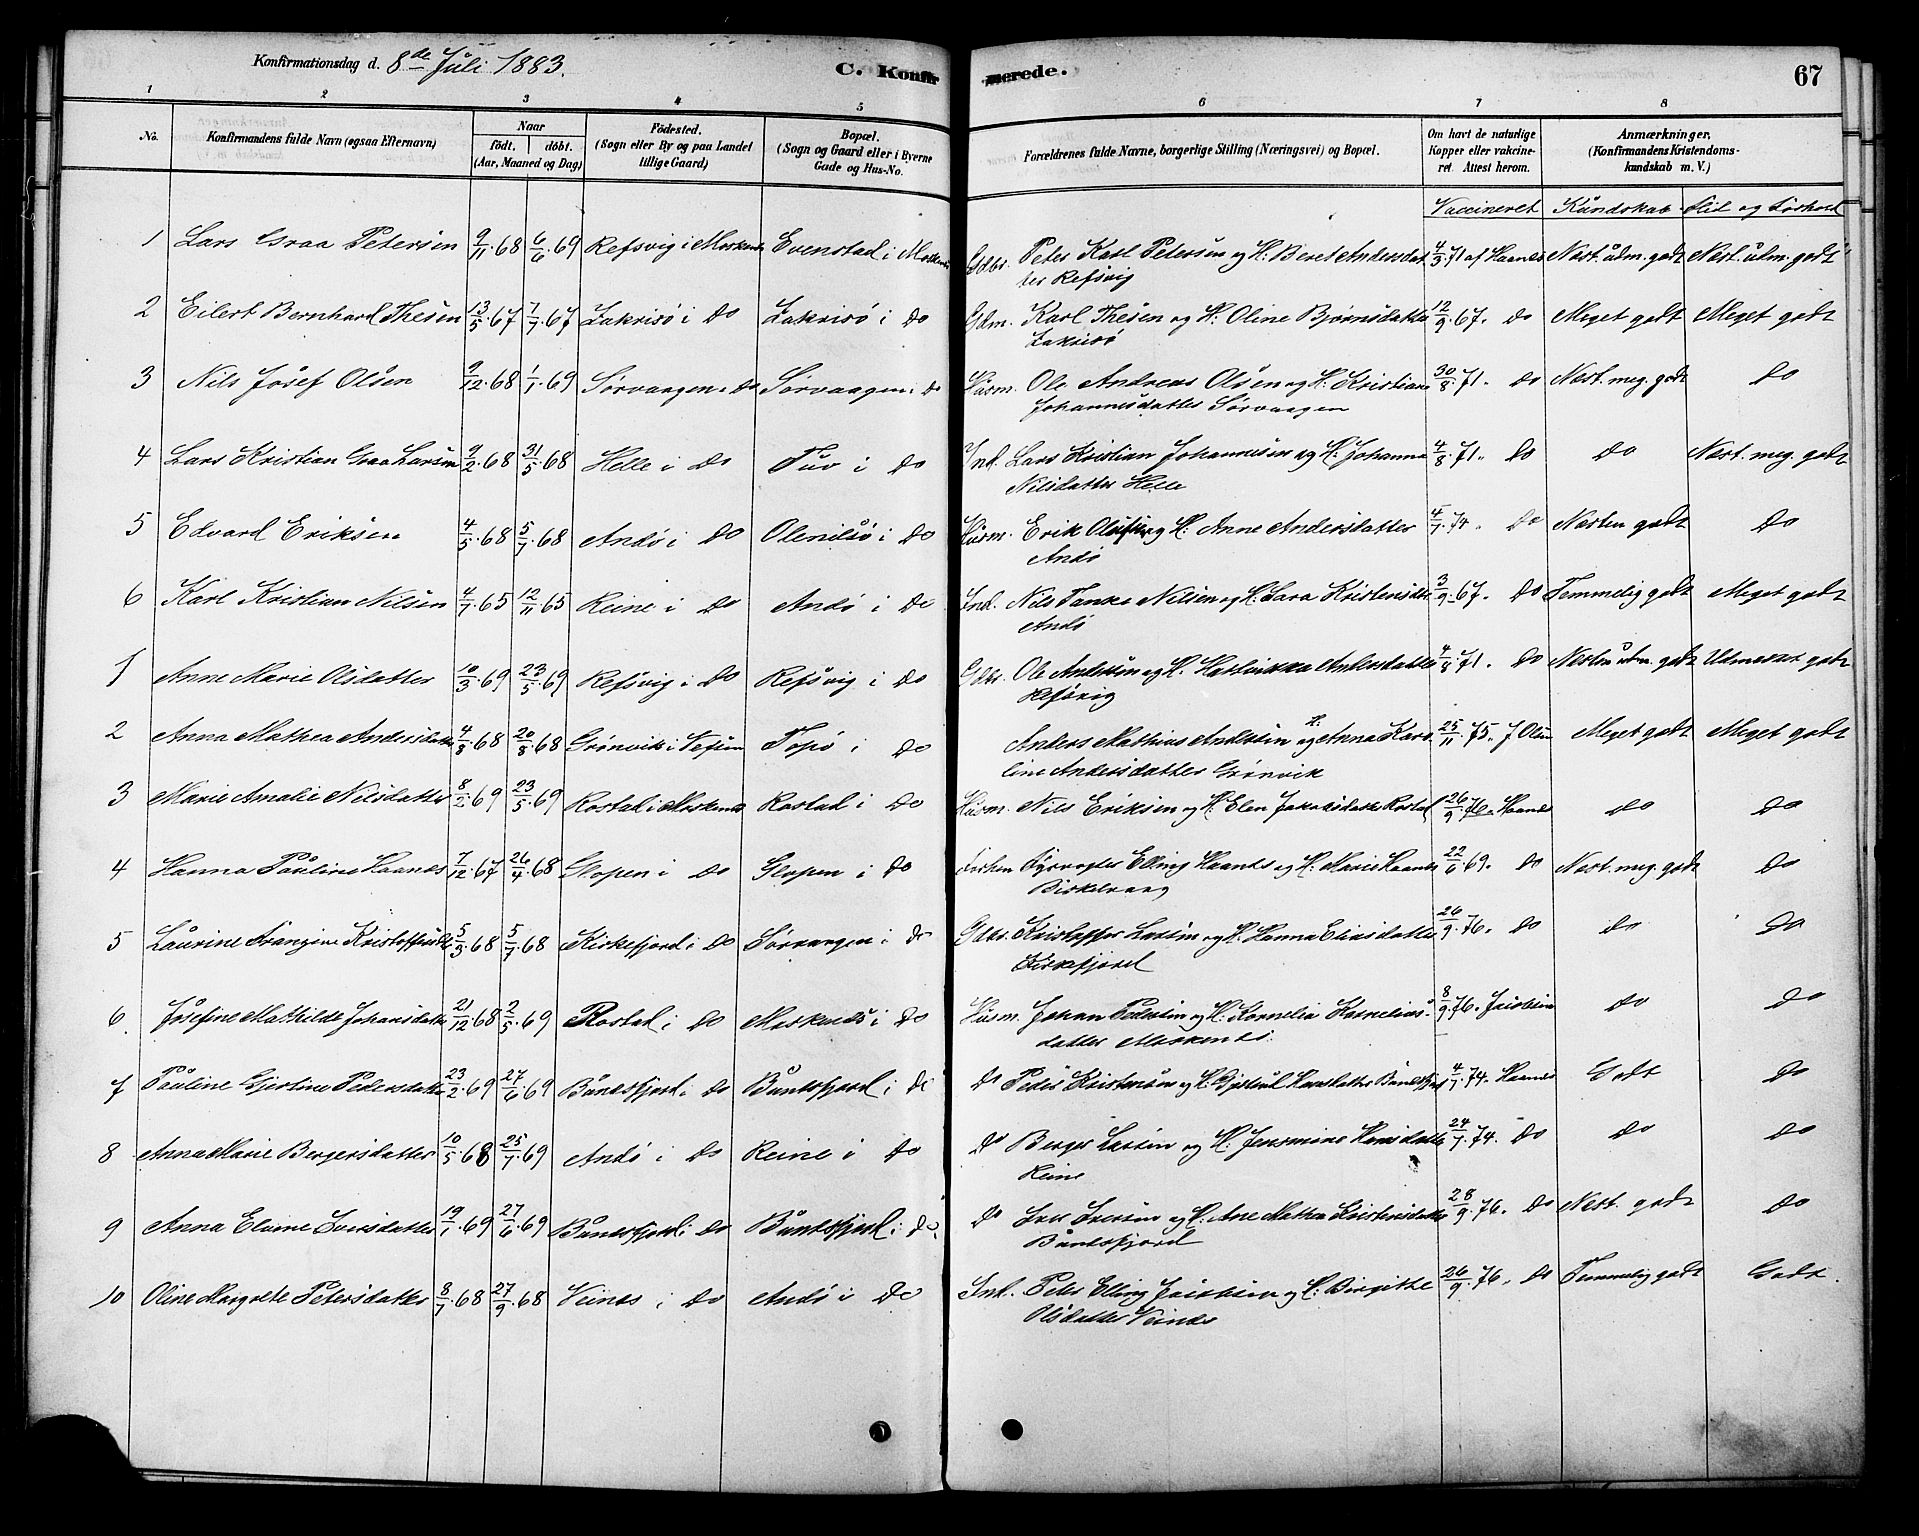 Konfirmationsdag d. 8de Juli 1883.
C. Konfirmerede.
67
1 2 3 4 5 6 7 8
No. Konfirmandens fulde Navn (ogsaa Efternavn) Naar født. døbt. (Aar, Maaned og Dag) Fødested. (Sogn eller By og paa Landet tillige Gaard) Bopæl. (Sogn og Gaard eller i Byerne Gade og Hus-No. Forældrenes fulde Navne, borgerlige Stilling (Næringsvei) og Bopæl. Om havt de naturlige Kopper eller vakcineret. Attest herom. Anmærkninger. (Konfirmandens Kristendomskundskab m. V.)
Vaccineret Kundskab Flid og Forhold
1 Lars Graa Petersen 9/11 68 6/6 69 Refsvig i Moskenes Evenstad i Moskenes Gdbr. Peter Karl Petersen og H. Beret Andersdat 4/5 71 af Haanes Næst. udm. godt Næst. udm. godt
ter Refsvig
2 Eilert Bernhard Thesen 13/5 67 7/7 67 Zakrisø i Do Zakrisø i Do Gdm. Karl Thesen og H. Oline Bjørnsdatter 12/9 67. Do Meget godt Meget godt
Zakrisø
3 Nils Josef Olsen 9/12 68 1/1 69 Sørvaagen i Do Sørvaagen i Do Husm. Ole Andreas Olsen og H. Kristiane 30/8 71. Do Næst. meg. godt Do
Johannesdatter Sørvaagen
4 Lars Kristian Graa Larsen 9/2 68 31/5 68 Helle i Do Tuv i Do Ind. Lars Kristian Johannesen og H. Johanna 4/8 71. Do Do Næst. meg. godt
Nilsdatter Helle
5 Edvard Eriksen 4/5 68 5/7 68 Andø i Do Olenilsø i Do Husm. Erik og H. Anne Andersdatter 4/7 74. Do Næsten godt Do
Andø
6 Karl Kristian Nilsen 4/7 65 12/11 65 Reine i Do Andø i Do Ind. Nils Tanke Nilsen og H. Lara Kristensdtr 3/9 67. Do Temmelig godt Meget godt
Andø
1 Anne Marie Olsdatter 10/3 69 23/5 69 Refsvig i Do Refsvig i Do Gdbr. Ole Andersen og H. Andersdatter 4/8 71. Do Næsten udm. godt Udmærket godt
Refsvig
2 Anna Mathea Andersdatter 4/8 68 20/8 68 Grønvik i Vefsen Topø i Do Anders Mathias Andersen og H. Anna Karo 25/11 75. J Olsen Meget godt Meget godt
line Andersdatter Grønvik
3 Marie Amalie Nilsdatter 8/2 69 23/5 69 Rostad i Moskenes Rostad i Do Husm. Nils Eriksen og H. Elen Jakobsdatter Rostad 26/9 76. Haanes Do Do
4 Hanna Pauline Haanes 7/12 67 26/4 68 Glopen i Do Glopen i Do Fyrvogter Elling Haanes og H. Marie Haanes 22/6 69. Do Næst. meg. godt Do
Birkelvaag
5 Laurine Frangine Kristoffersdtr 5/3 68 5/7 68 Kirkefjord i Do Sørvaagen i Do Gdbr. Kristoffer Larsen og H. Hanna Eliasdatter 26/9 76. Do Do Do
Kirkefjord
6. Josefine Mathilde Johansdatter 21/12 68 2/5 69 Rostad i Do Moskenes i Do Husm. Johan Pedersen og H. Kornelia Kornelius- 8/9 76. Jacobsen Do Do
datter Moskenes.
7 Pauline Gjertine Pedersdatter 23/2 69 27/6 69 Bunesfjord i Do Bunesfjord i Do Do Peder Kristensen og H. Hansdatter Bunesfjord 4/7 74. Haanes Godt Do
8 Anna Marie Bergersdatter 10/5 68 25/7 69 Andø i Do Reine i Do Do Berger Larsen og H. Jensmine Hansdatter 24/7 74. Do Do Do
Reine
9 Anna Elvine Iversdatter 19/1 69 27/6 69 Bunesfjord i Do Bunesfjord i Do. Do Iver Iversen og H. Ane Mathea Kristensdatter 28/9 76. Do Næst. godt Do
Bunesfjord
10 Oline Margrete Petersdatter 8/7 68 27/9 68 Veines i Do Andø i Do Ind. Peter Elling Jacobsen og H. Birgitte 26/9 76. Do Temmelig godt Godt.
Olsdatter Veines